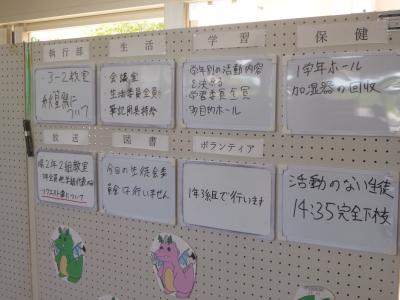 執行部
・3-2教室
について
生活
会議室
生活委員全員
筆記用具持参
学習
学年別の活動内容
を決める
学習委員全員
多目的ホール
保健
1学年ホール
加湿器の回収
放送
2年2組教室
リクエスト曲について
図書
今日の生徒会委
員会は行いません
ボランティア
1年3組で行います
活動のない生徒
14:35完全下校